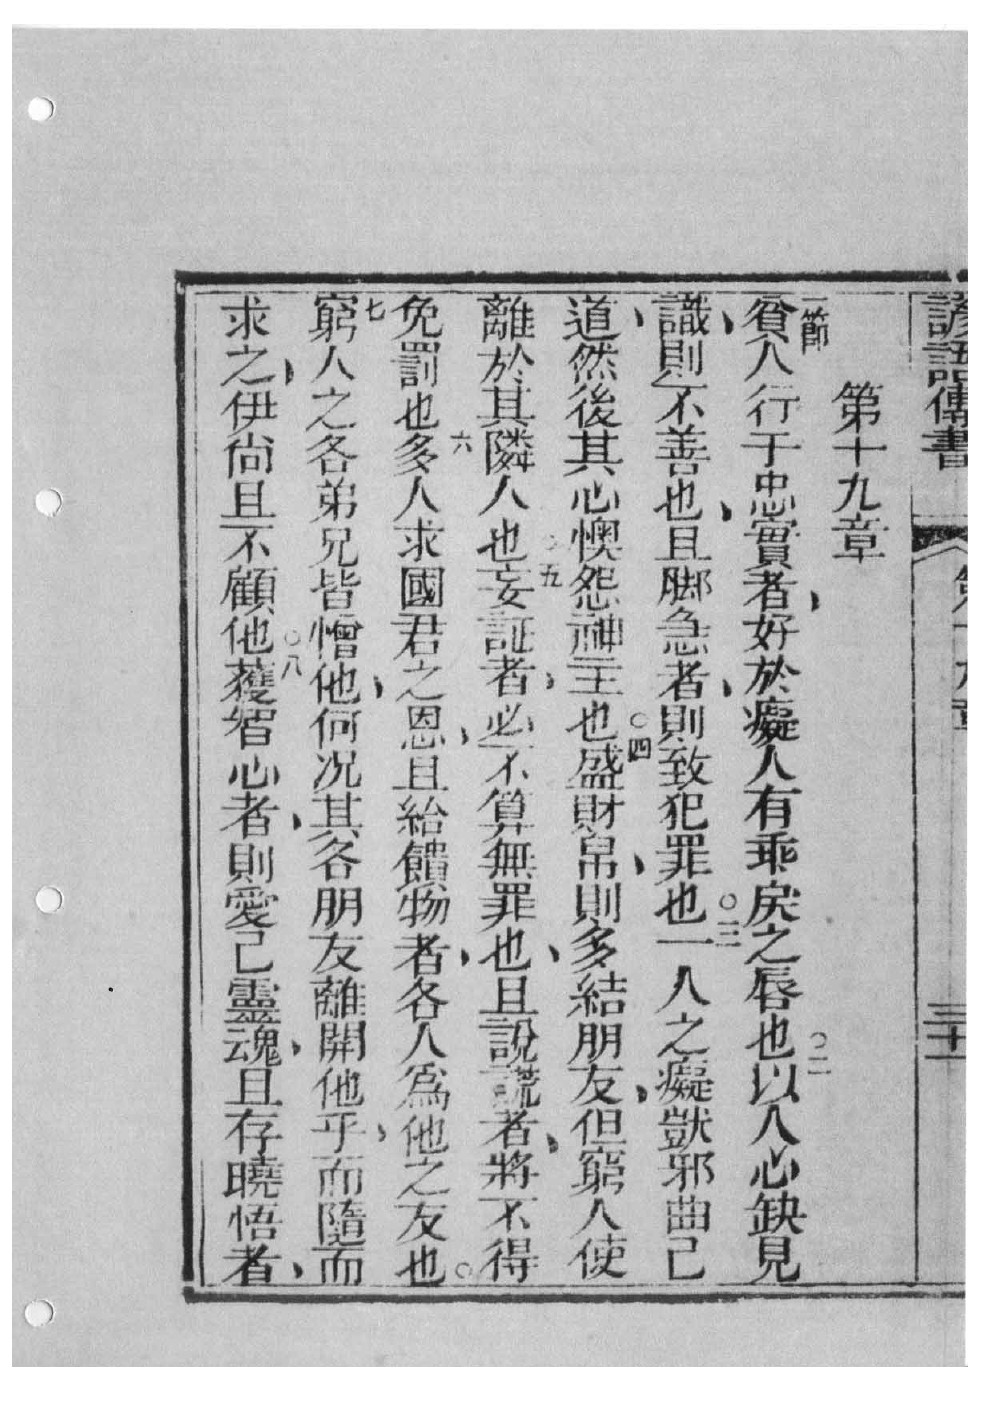 諺語傳書 第十九章 三十一
第十九章
一節貧人行于忠實者、好於癡人有乖戾之唇也○二以人心缺見
識、則不善也、且脚急者、則致犯罪也○三一人之癡獃邪曲己
道、然後其心懊怨神主也○四盛財帛、則多結朋友、但窮人使
離於其隣人也○五妄証者、必不算無罪也、且說謊者、將不得
免罰也六多人求國君之恩、且給饋物者、各人為他之友也○
七窮人之各弟兄皆憎他、何况其各朋友離開他乎、而隨而
求之、伊尚且不顧他○八獲智心者、則愛己靈魂、且存曉悟者、